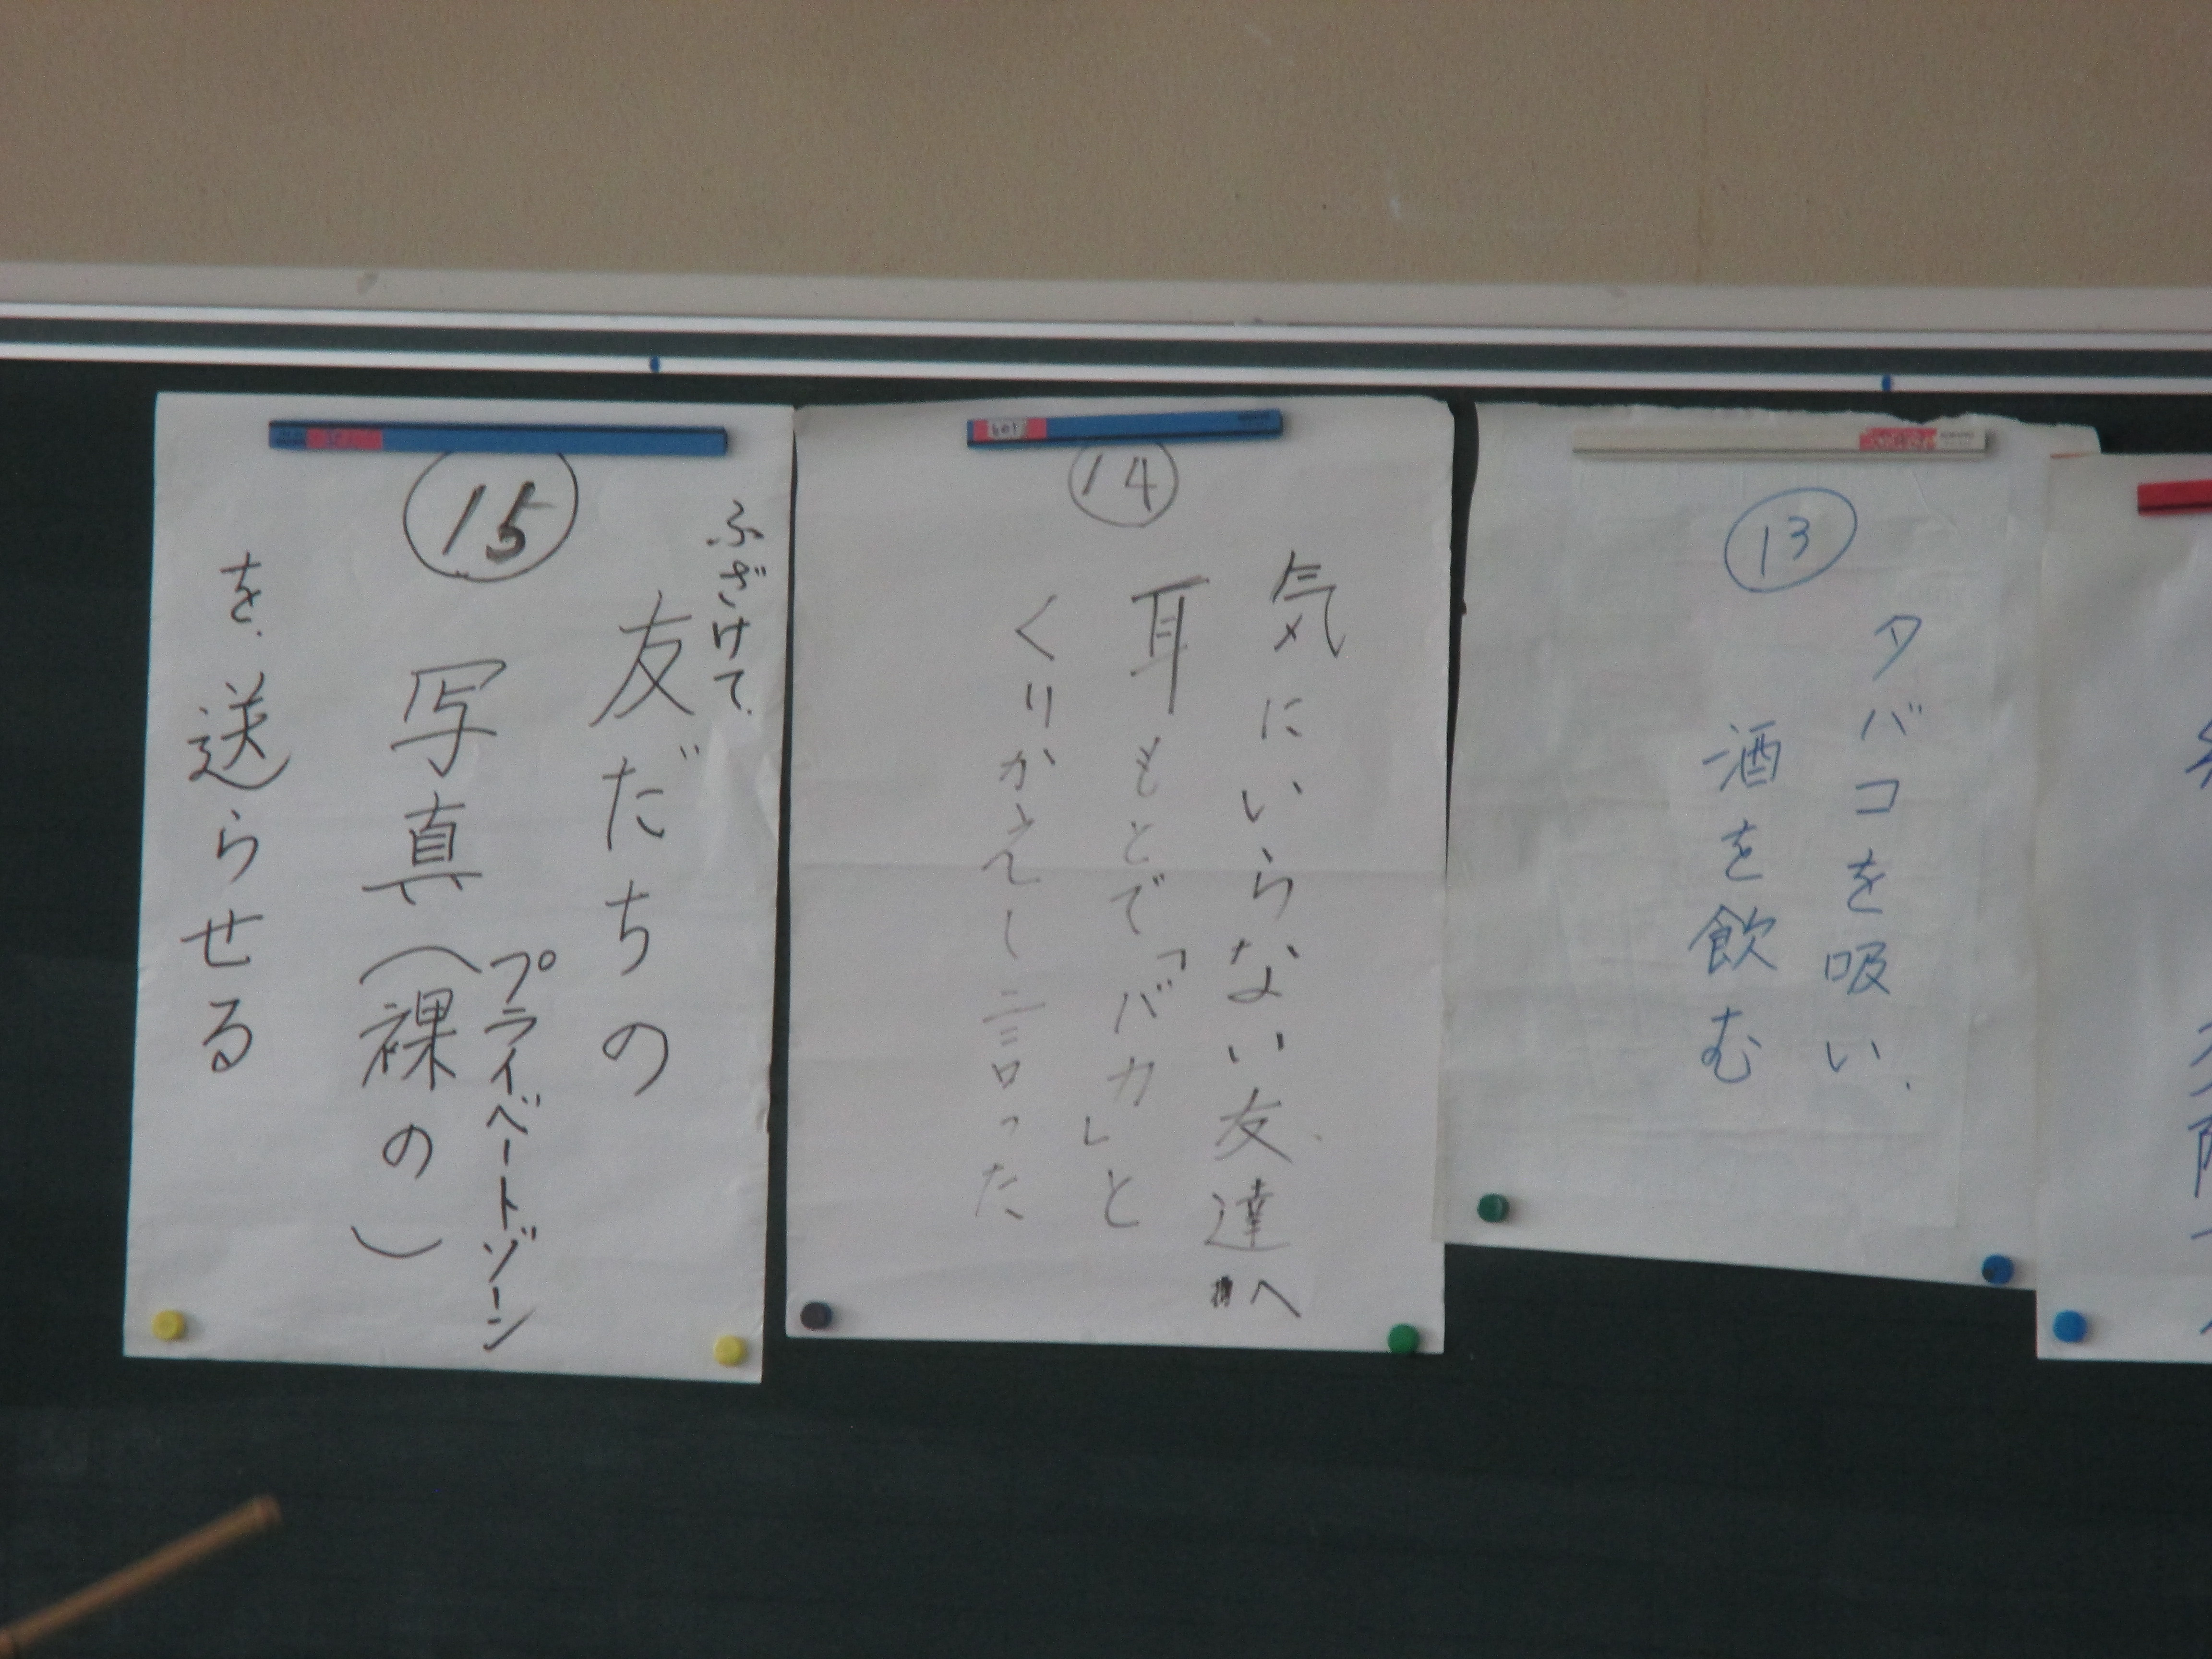 ⑬
タバコを吸い、
酒を飲む
⑭
気にいらない友達へ
耳もとで「バカ」と
くりかえし言った
⑮
ふざけて、
友だちの
プライベートゾーン
写真(裸の)
を、送らせる